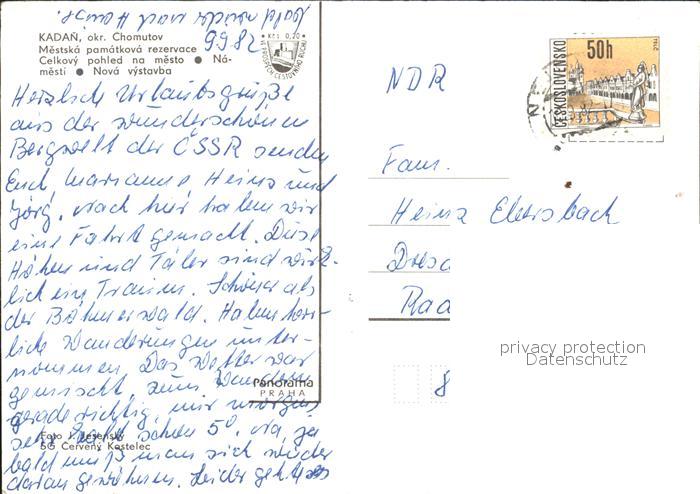 bald wieder nach Hause.
9.9.82
KADAŇ, okr. Chomutov
Městská památková rezervace
Celkový pohled na město ● Ná-
městí ● Nová výstavba
Kčs 0,20
Herzlich Urlaubsgrüße
aus der wunderschönen
Bergwelt der ČSSR senden
Euch, Marianne Heinz und
Jörg. Nach hier haben wir
eine Fahrt gemacht. Diese
Höhen und Täler sind wirk-
lich ein Traum. Schöner als
der Böhmerwald. Haben herr-
liche Wanderungen unter-
nommen. Das Wetter war
gemischt, zum Wandern
gerade richtig, nur morgens
schon 5°. Na ja
bald muß man sich wieder
daran gewöhnen. Leider geht es
Panorama
PRAHA
Foto J. Jesenský
SG Červený Kostelec
ČESKOSLOVENSKO
50h
TELČ
NDR
Fam.
Heinz Ebersbach
Dresd
Rad
8
privacy protection
Datenschutz